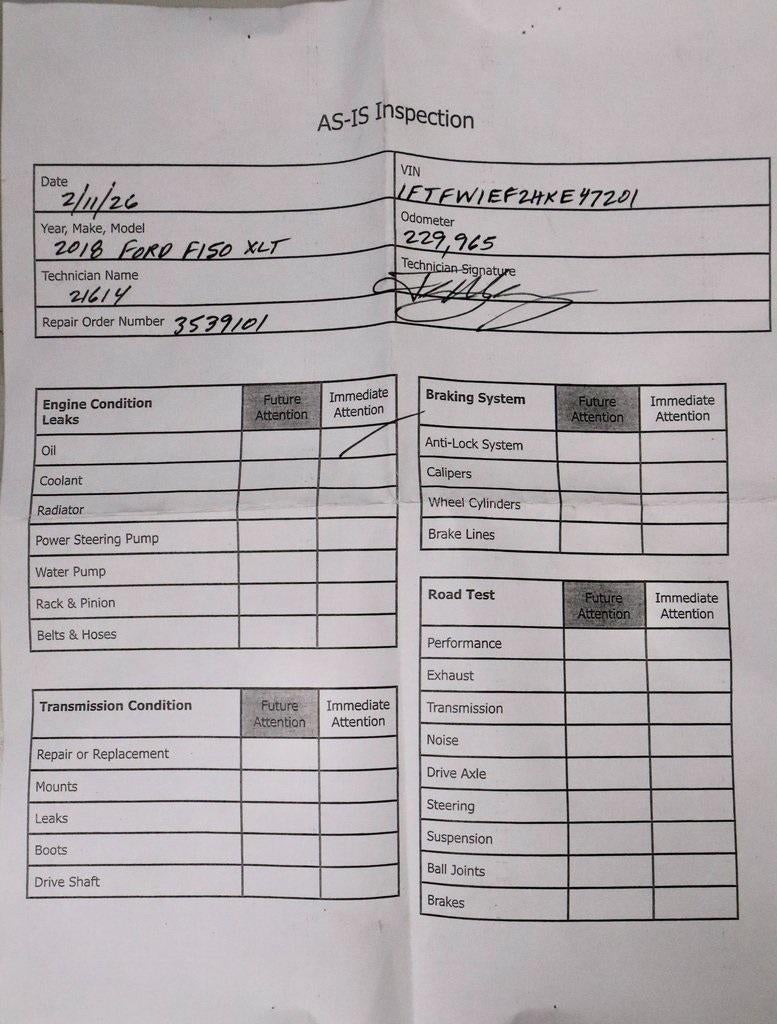 AS-IS Inspection
Date 2/11/26
VIN 1FTFW1EF2HKE47201
Year, Make, Model 2018 FORD F150 XLT
Odometer 229,965
Technician Name 21614
Technician Signature
Repair Order Number 3539101
Engine Condition Leaks
Future Attention
Immediate Attention
Oil
Coolant
Radiator
Power Steering Pump
Water Pump
Rack & Pinion
Belts & Hoses
Braking System
Future Attention
Immediate Attention
Anti-Lock System
Calipers
Wheel Cylinders
Brake Lines
Transmission Condition
Future Attention
Immediate Attention
Repair or Replacement
Mounts
Leaks
Boots
Drive Shaft
Road Test
Future Attention
Immediate Attention
Performance
Exhaust
Transmission
Noise
Drive Axle
Steering
Suspension
Ball Joints
Brakes